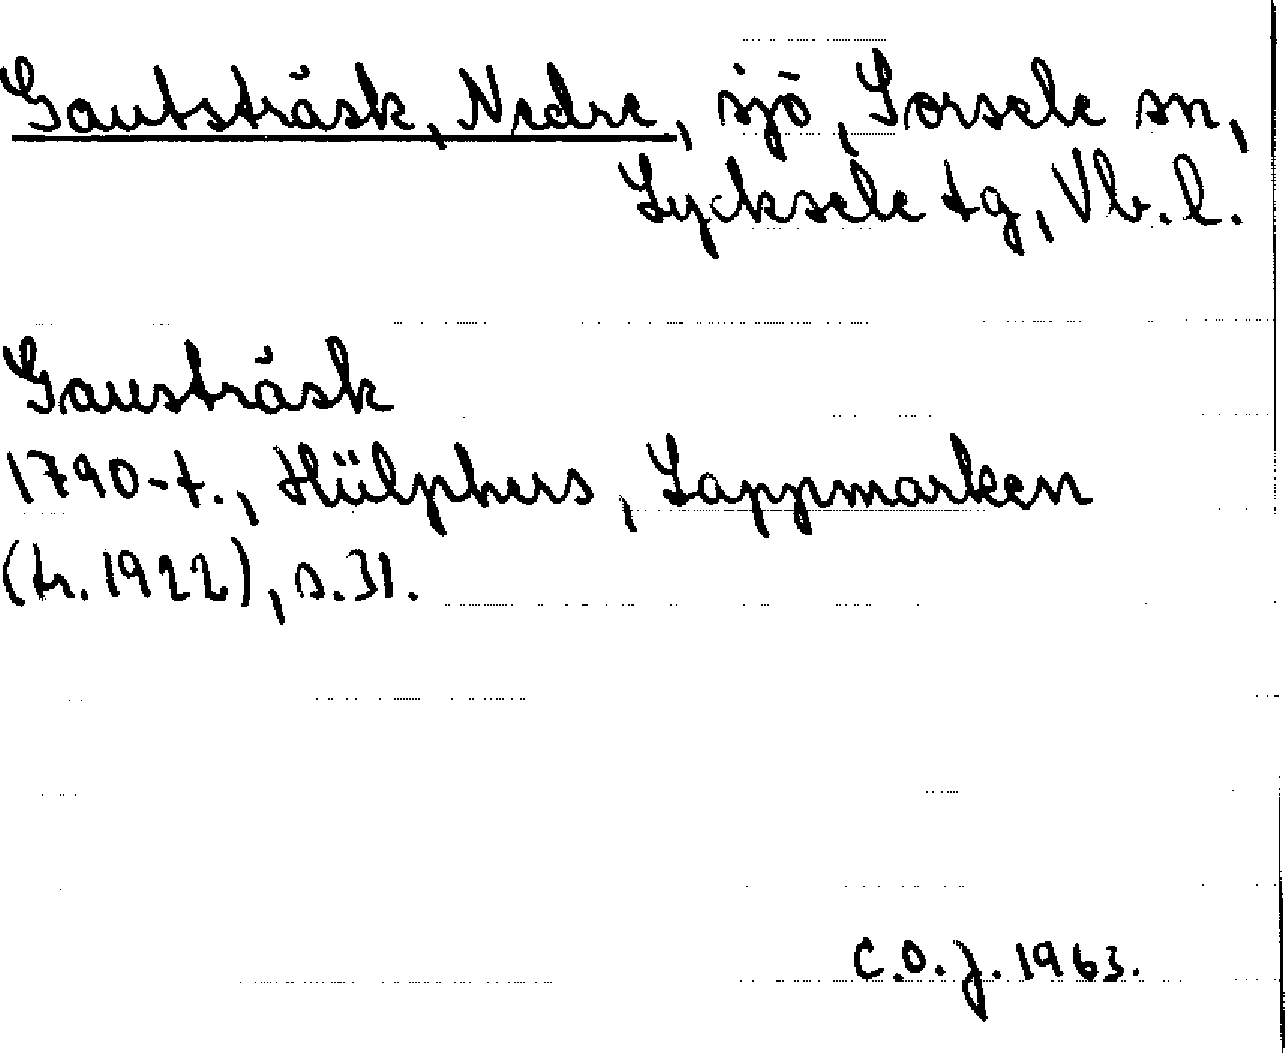 Gautsträsk, Nedre, sjö, Sorsele sn,
Lycksele tg, Vb. l.
Gausträsk
1790-t., Hülphers, Lappmarken
(tr. 1922), s. 31.
C.O.J. 1963.